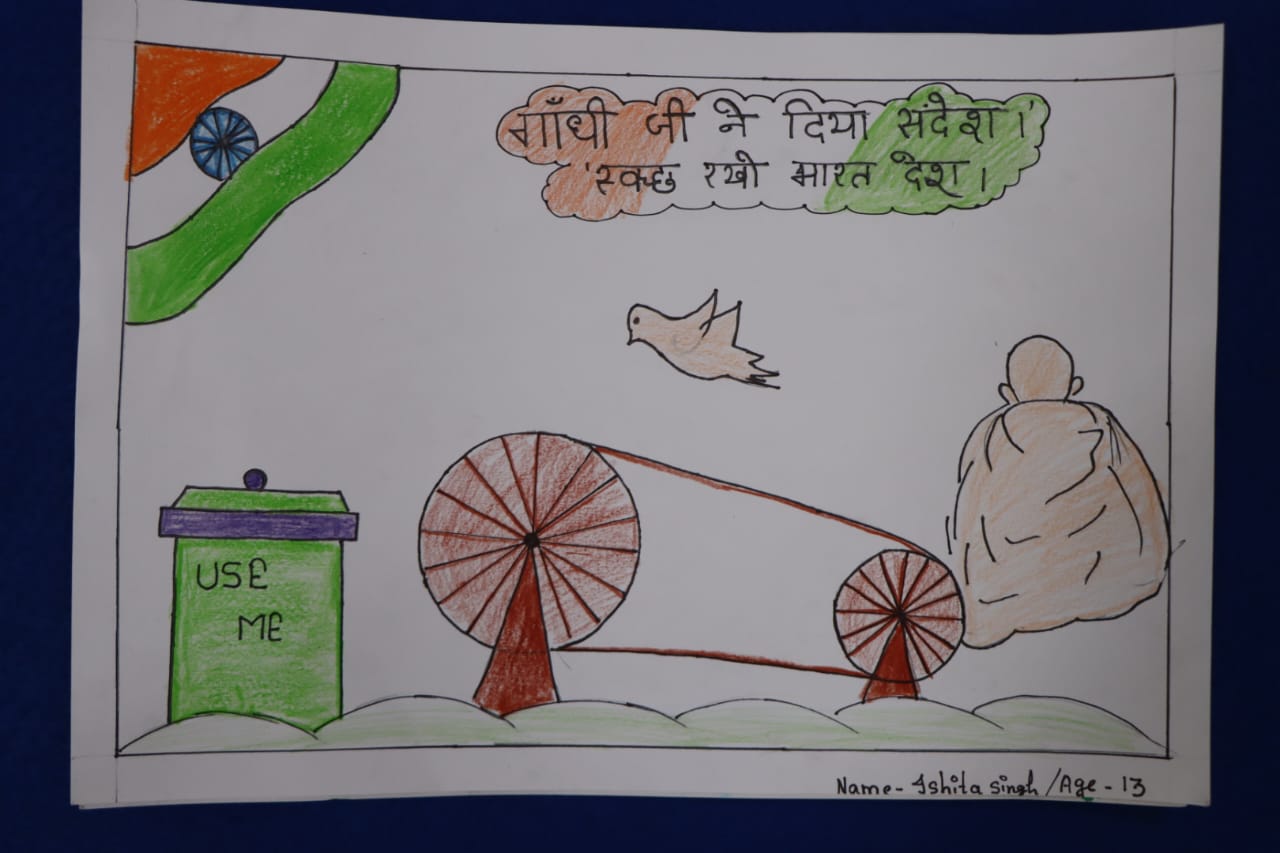 गाँधी जी ने दिया संदेश।
'स्वच्छ रखो भारत देश।
USE
ME
Name- Ishita Singh /Age - 13